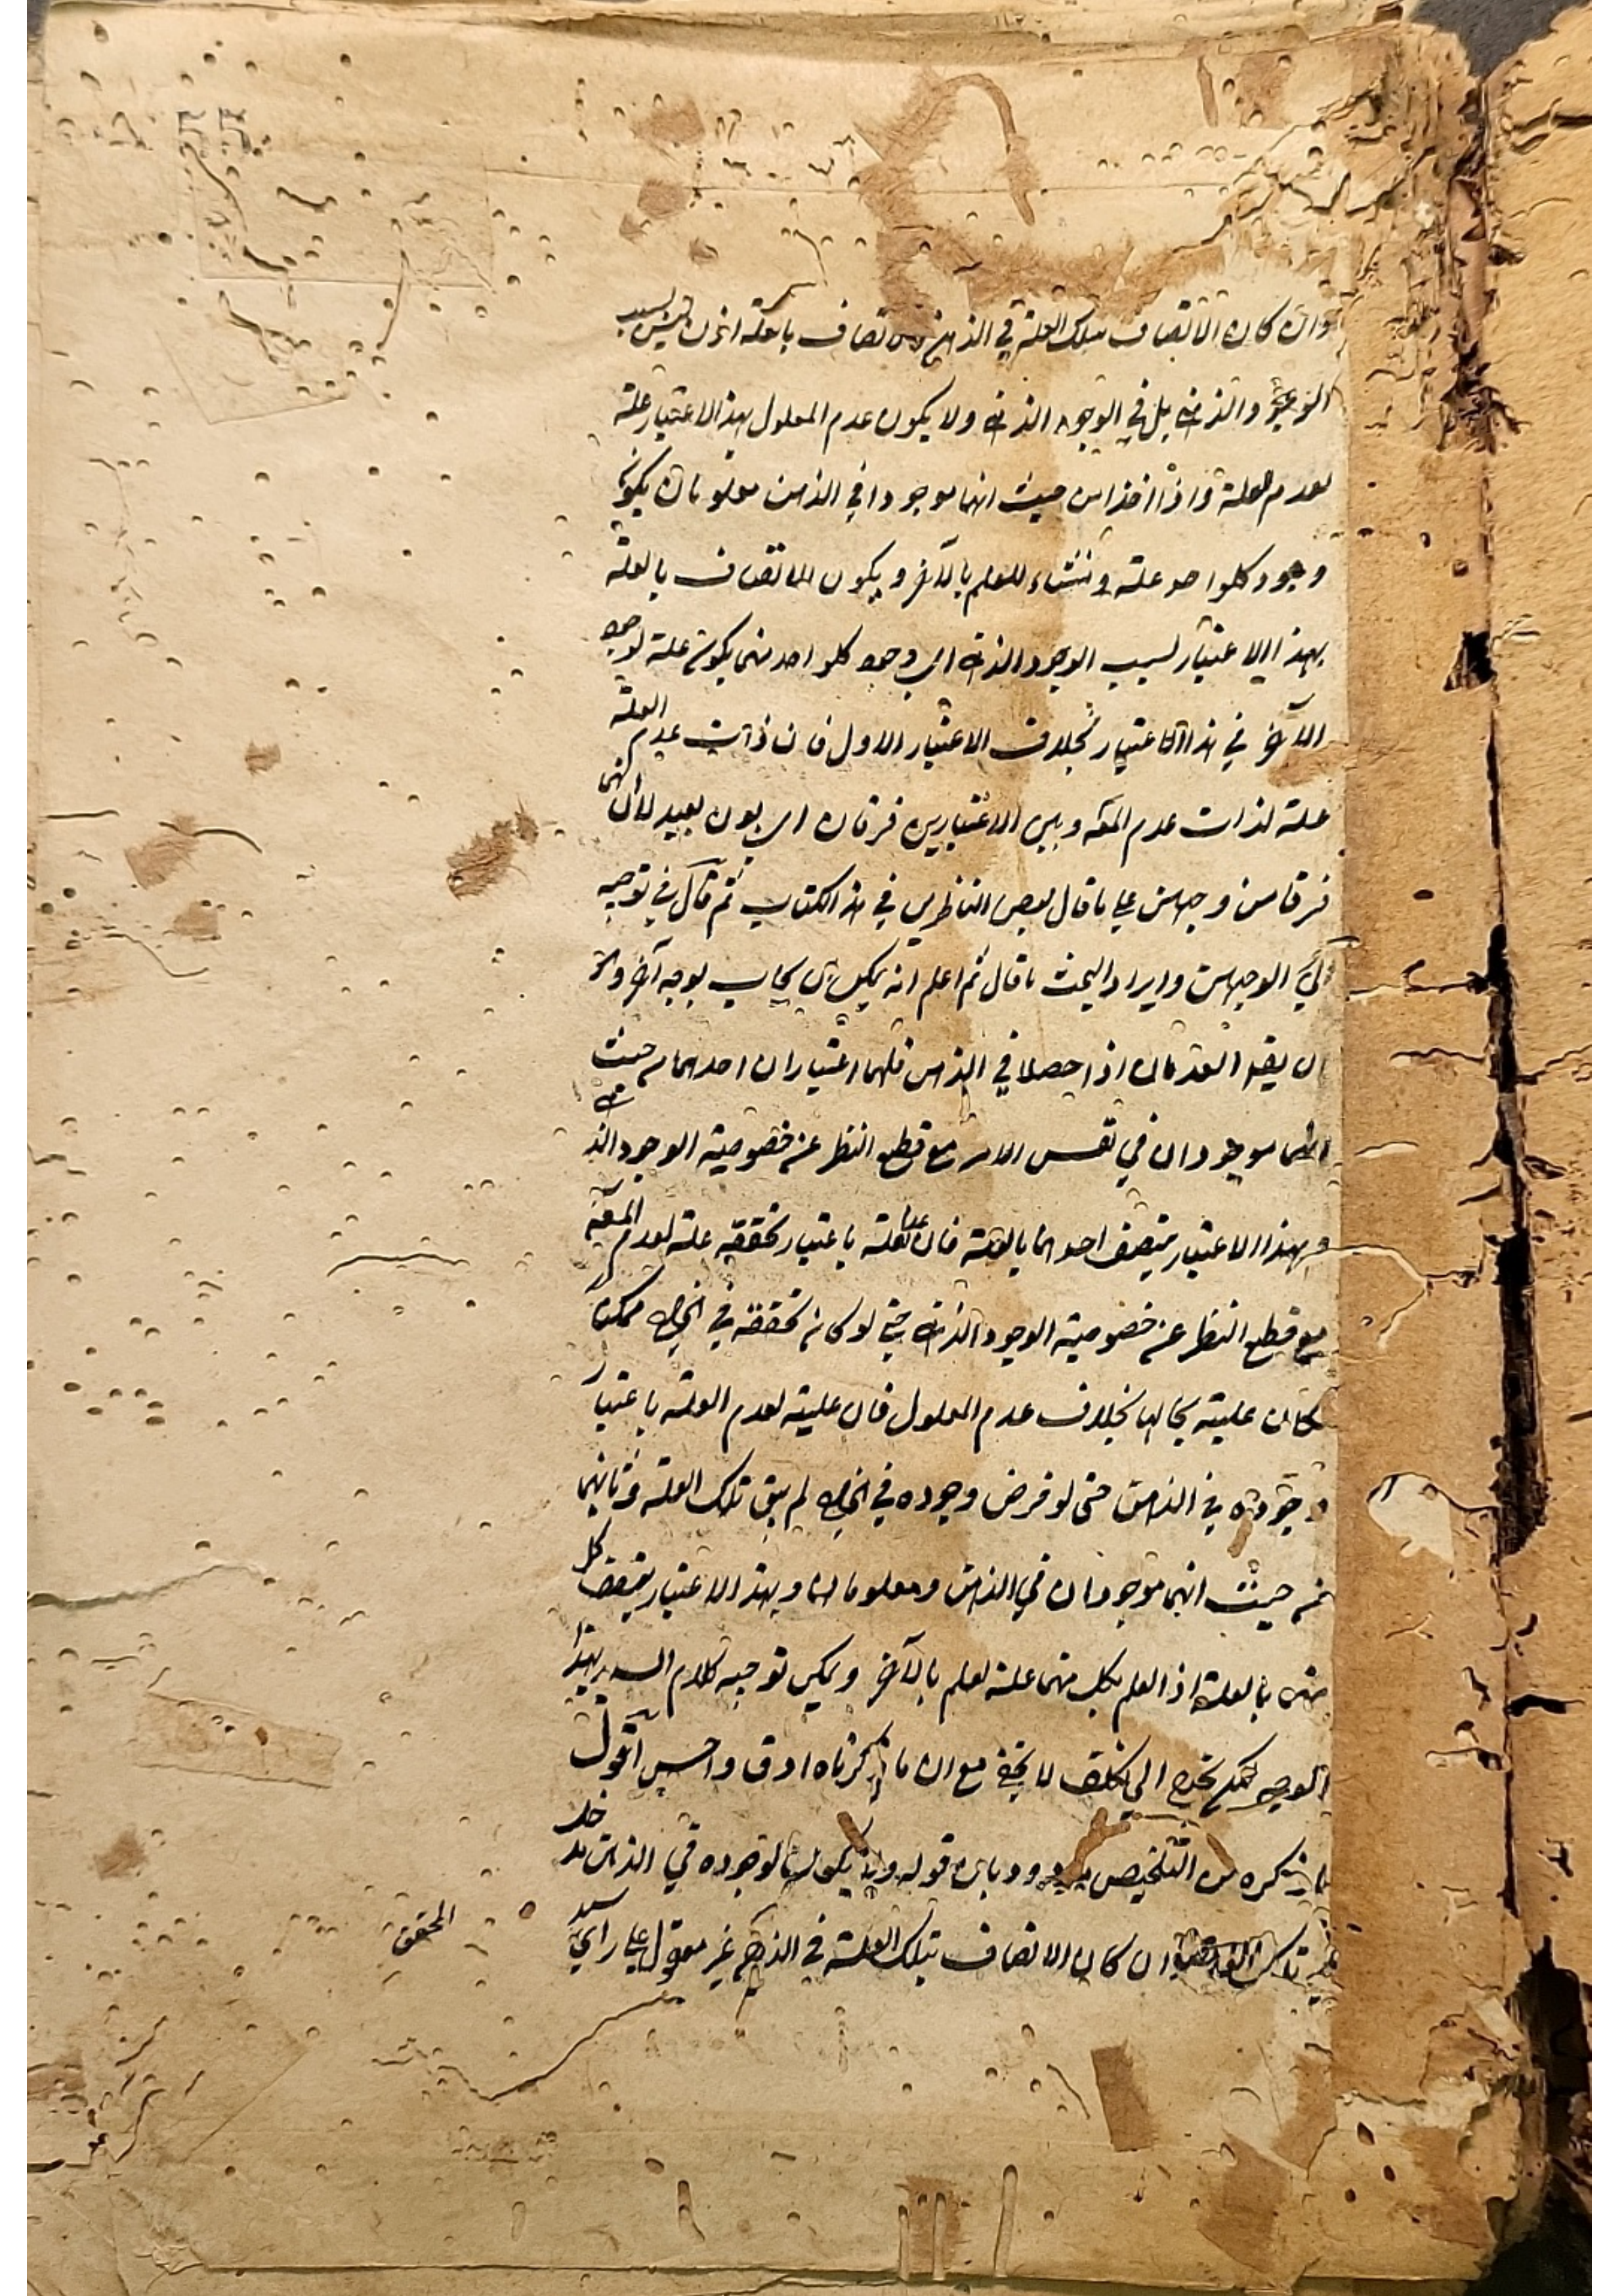 وان كان الاتصاف بتلك العلة في الذهن تصاف بالعلة اذن ليس بسبب
الوجود الذهني بل في الوجود الذهني ولا يكون عدم المعلول بهذا الاعتبار علة
لعدم العلة واذا اخذا من حيث انهما موجودا في الذهن معلومان يكون
وجود كلواحد علة ومنشاء للعلم بالآخر ويكون الاتصاف بالعلة
بهذا الاعتبار لسبب الوجود الذهني اي وجود كلواحد منهما يكون علة لوجود
الآخر في هذا الاعتبار بخلاف الاعتبار الاول فان ذات عدم العلة
علة لذات عدم المعلول وبين الاعتبارين فرقان اي بون بعيد
فرقا من وجهين على ما قال بعض الناظرين في هذا الكتاب ثم قال في توجيه
الوجهين وايراد البحث ما قال ثم اعلم انه يمكن ان يجاب بوجه آخر وهو
ان يقال العدمان اذا حصلا في الذهن فلهما اعتباران احدهما من حيث
انهما موجودان في نفس الامر مع قطع النظر عن خصوصية الوجود الذهني
وبهذا الاعتبار يتصف احدهما بالعلة فان عدم العلة باعتبار تحققه علة لعدم المعلول
مع قطع النظر عن خصوصية الوجود الذهني حتى لو كان تحققه في الخارج ممكنا
لكان علية بحالها بخلاف عدم المعلول فان علية لعدم العلة باعتبار
وجوده في الذهن حتى لو فرض وجوده في الخارج لم يبق تلك العلة وثانيهما
من حيث انهما موجودان في الذهن ومعلومان لنا وبهذا الاعتبار يتصف كل
منهما بالعلة اذ العلم بكل منهما علة لعلم بالآخر ويمكن توجيه كلام السيد بهذا
الوجه لكنه يحتاج الى تكلف لا يخفى مع ان ما ذكرناه ادق واحسن اقول
ما ذكره من التلخيص مردود بان قوله ولا يكون لوجوده في الذهن مدخل
في تلك ان كان الاتصاف بتلك العلة في الذهن غير معقول على راي سيد
المحقق